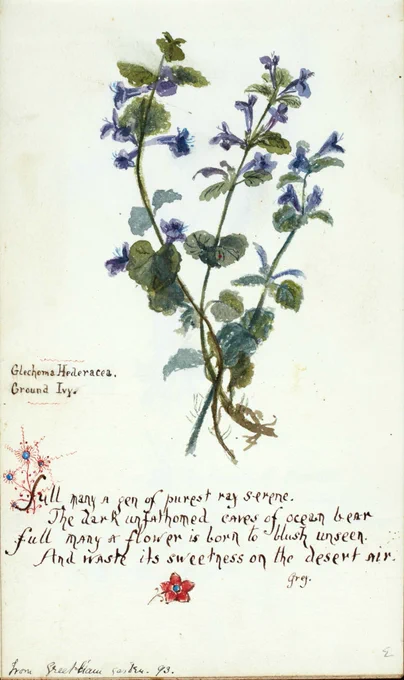 Glechoma Hederacea.
Ground Ivy.
Full many a gen of purest ray serene.
The dark unfathomed caves of ocean bear
full many a flower is born to blush unseen.
And waste its sweetness on the desert air.
Gry.
E
From Greatham garden. 93.